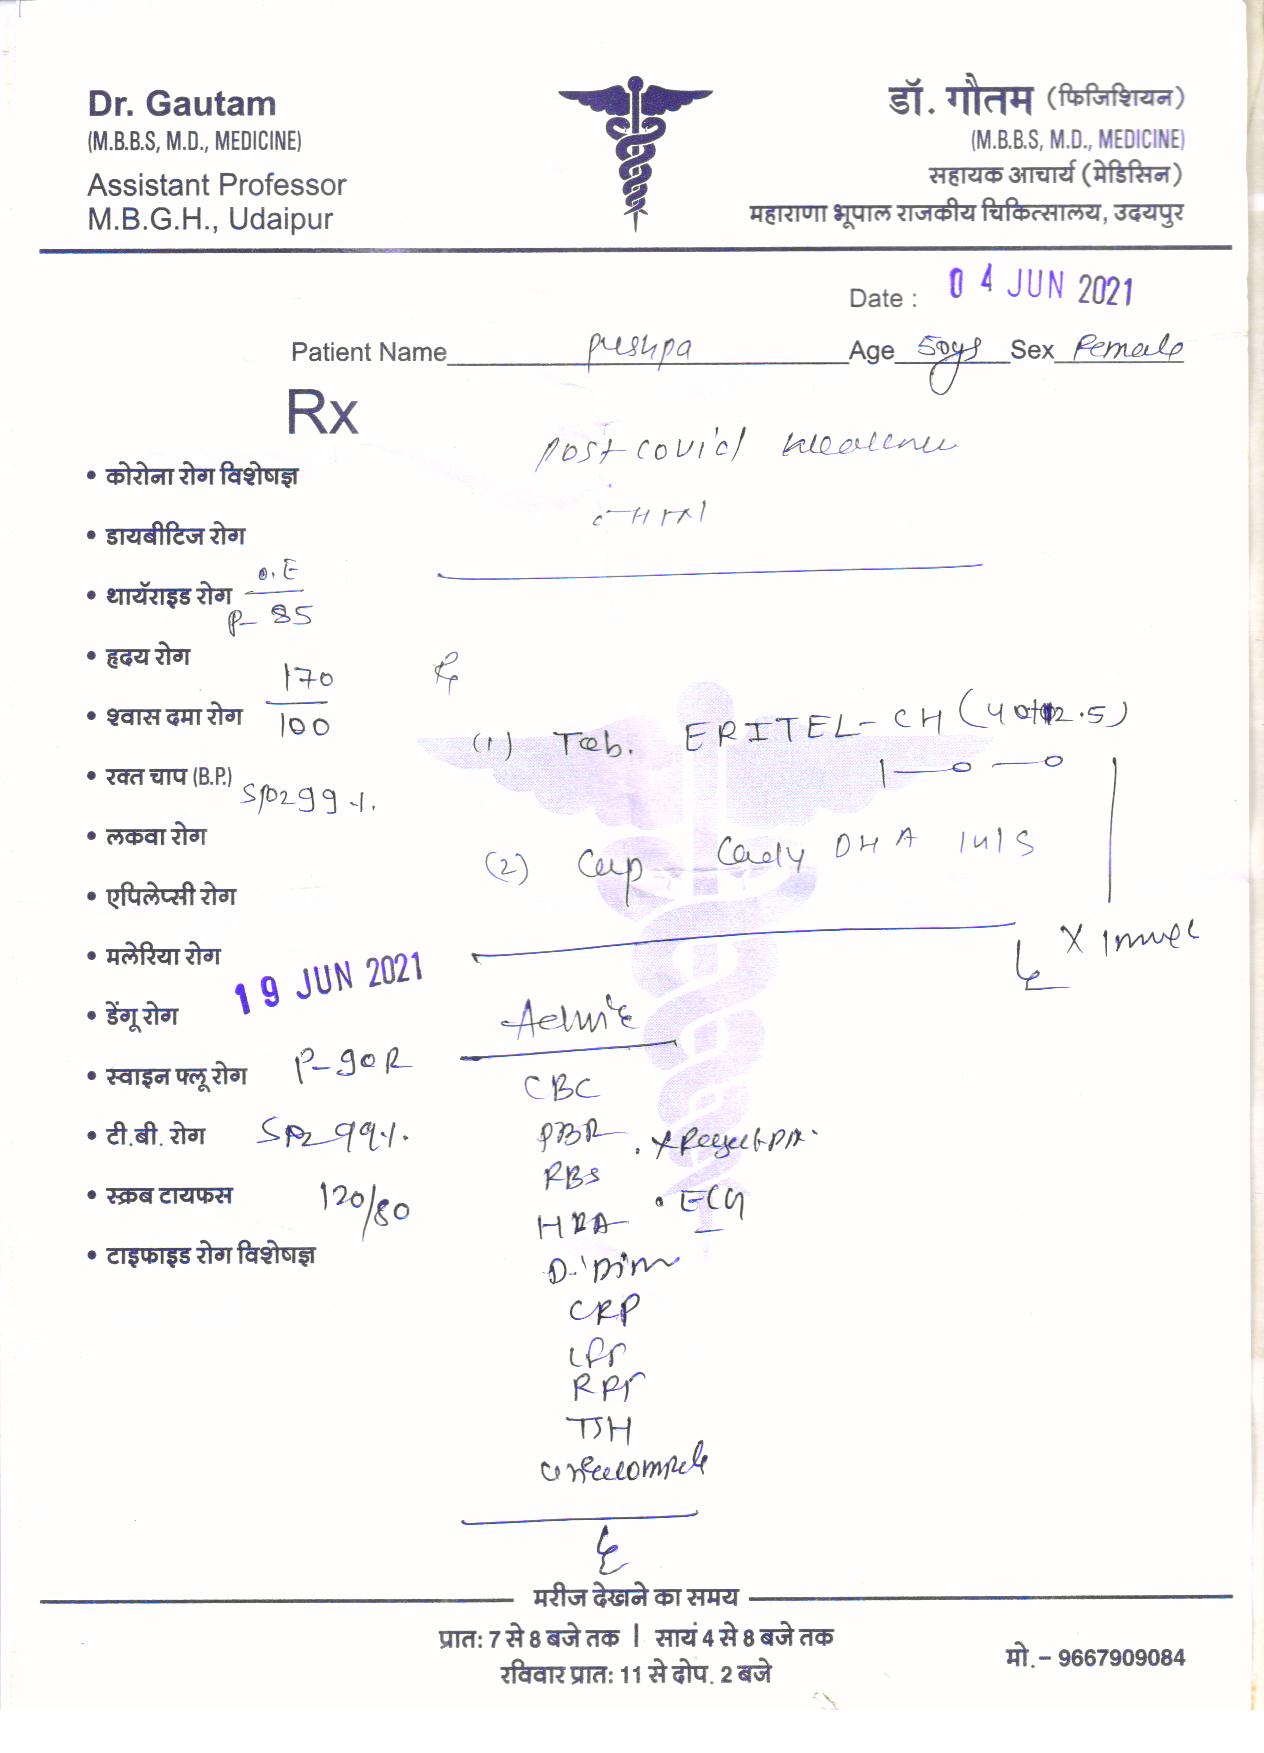 Dr. Gautam
(M.B.B.S, M.D., MEDICINE)
Assistant Professor
M.B.G.H., Udaipur
डॉ. गौतम (फिजिशियन)
(M.B.B.S, M.D., MEDICINE)
सहायक आचार्य (मेडिसिन)
महाराणा भूपाल राजकीय चिकित्सालय, उदयपुर
Date : 04 JUN 2021
Patient Name Pushpa Age 50ys Sex Female
Rx
Post covid
• कोरोना रोग विशेषज्ञ
• डायबीटिज रोग
O.E
• थायॅराइड रोग
P- 85
• हृदय रोग
170
• श्वास दमा रोग
100
(1) Tab. ERITEL-CH (40/12.5)
1—0—0
• रक्त चाप (B.P.)
SPO2 99%.
• लकवा रोग
(2) Cap DHA
• एपिलेप्सी रोग
• मलेरिया रोग
19 JUN 2021
• डेंगू रोग
Advice
• स्वाइन फ्लू रोग
P-90R
CBC
• टी.बी. रोग
SPO2 99%.
PBF
RBS
• स्क्रब टायफस
120/80
• ECG
• टाइफाइड रोग विशेषज्ञ
CRP
LFT
RFT
TSH
मरीज देखने का समय
प्रात: 7 से 8 बजे तक | सायं 4 से 8 बजे तक
रविवार प्रात: 11 से दोप. 2 बजे
मो.– 9667909084